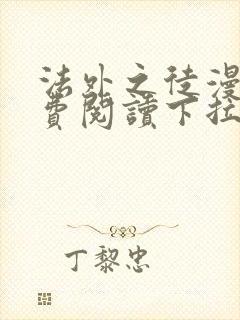 法外之徒漫
費閱讀下拉
丁黎忠